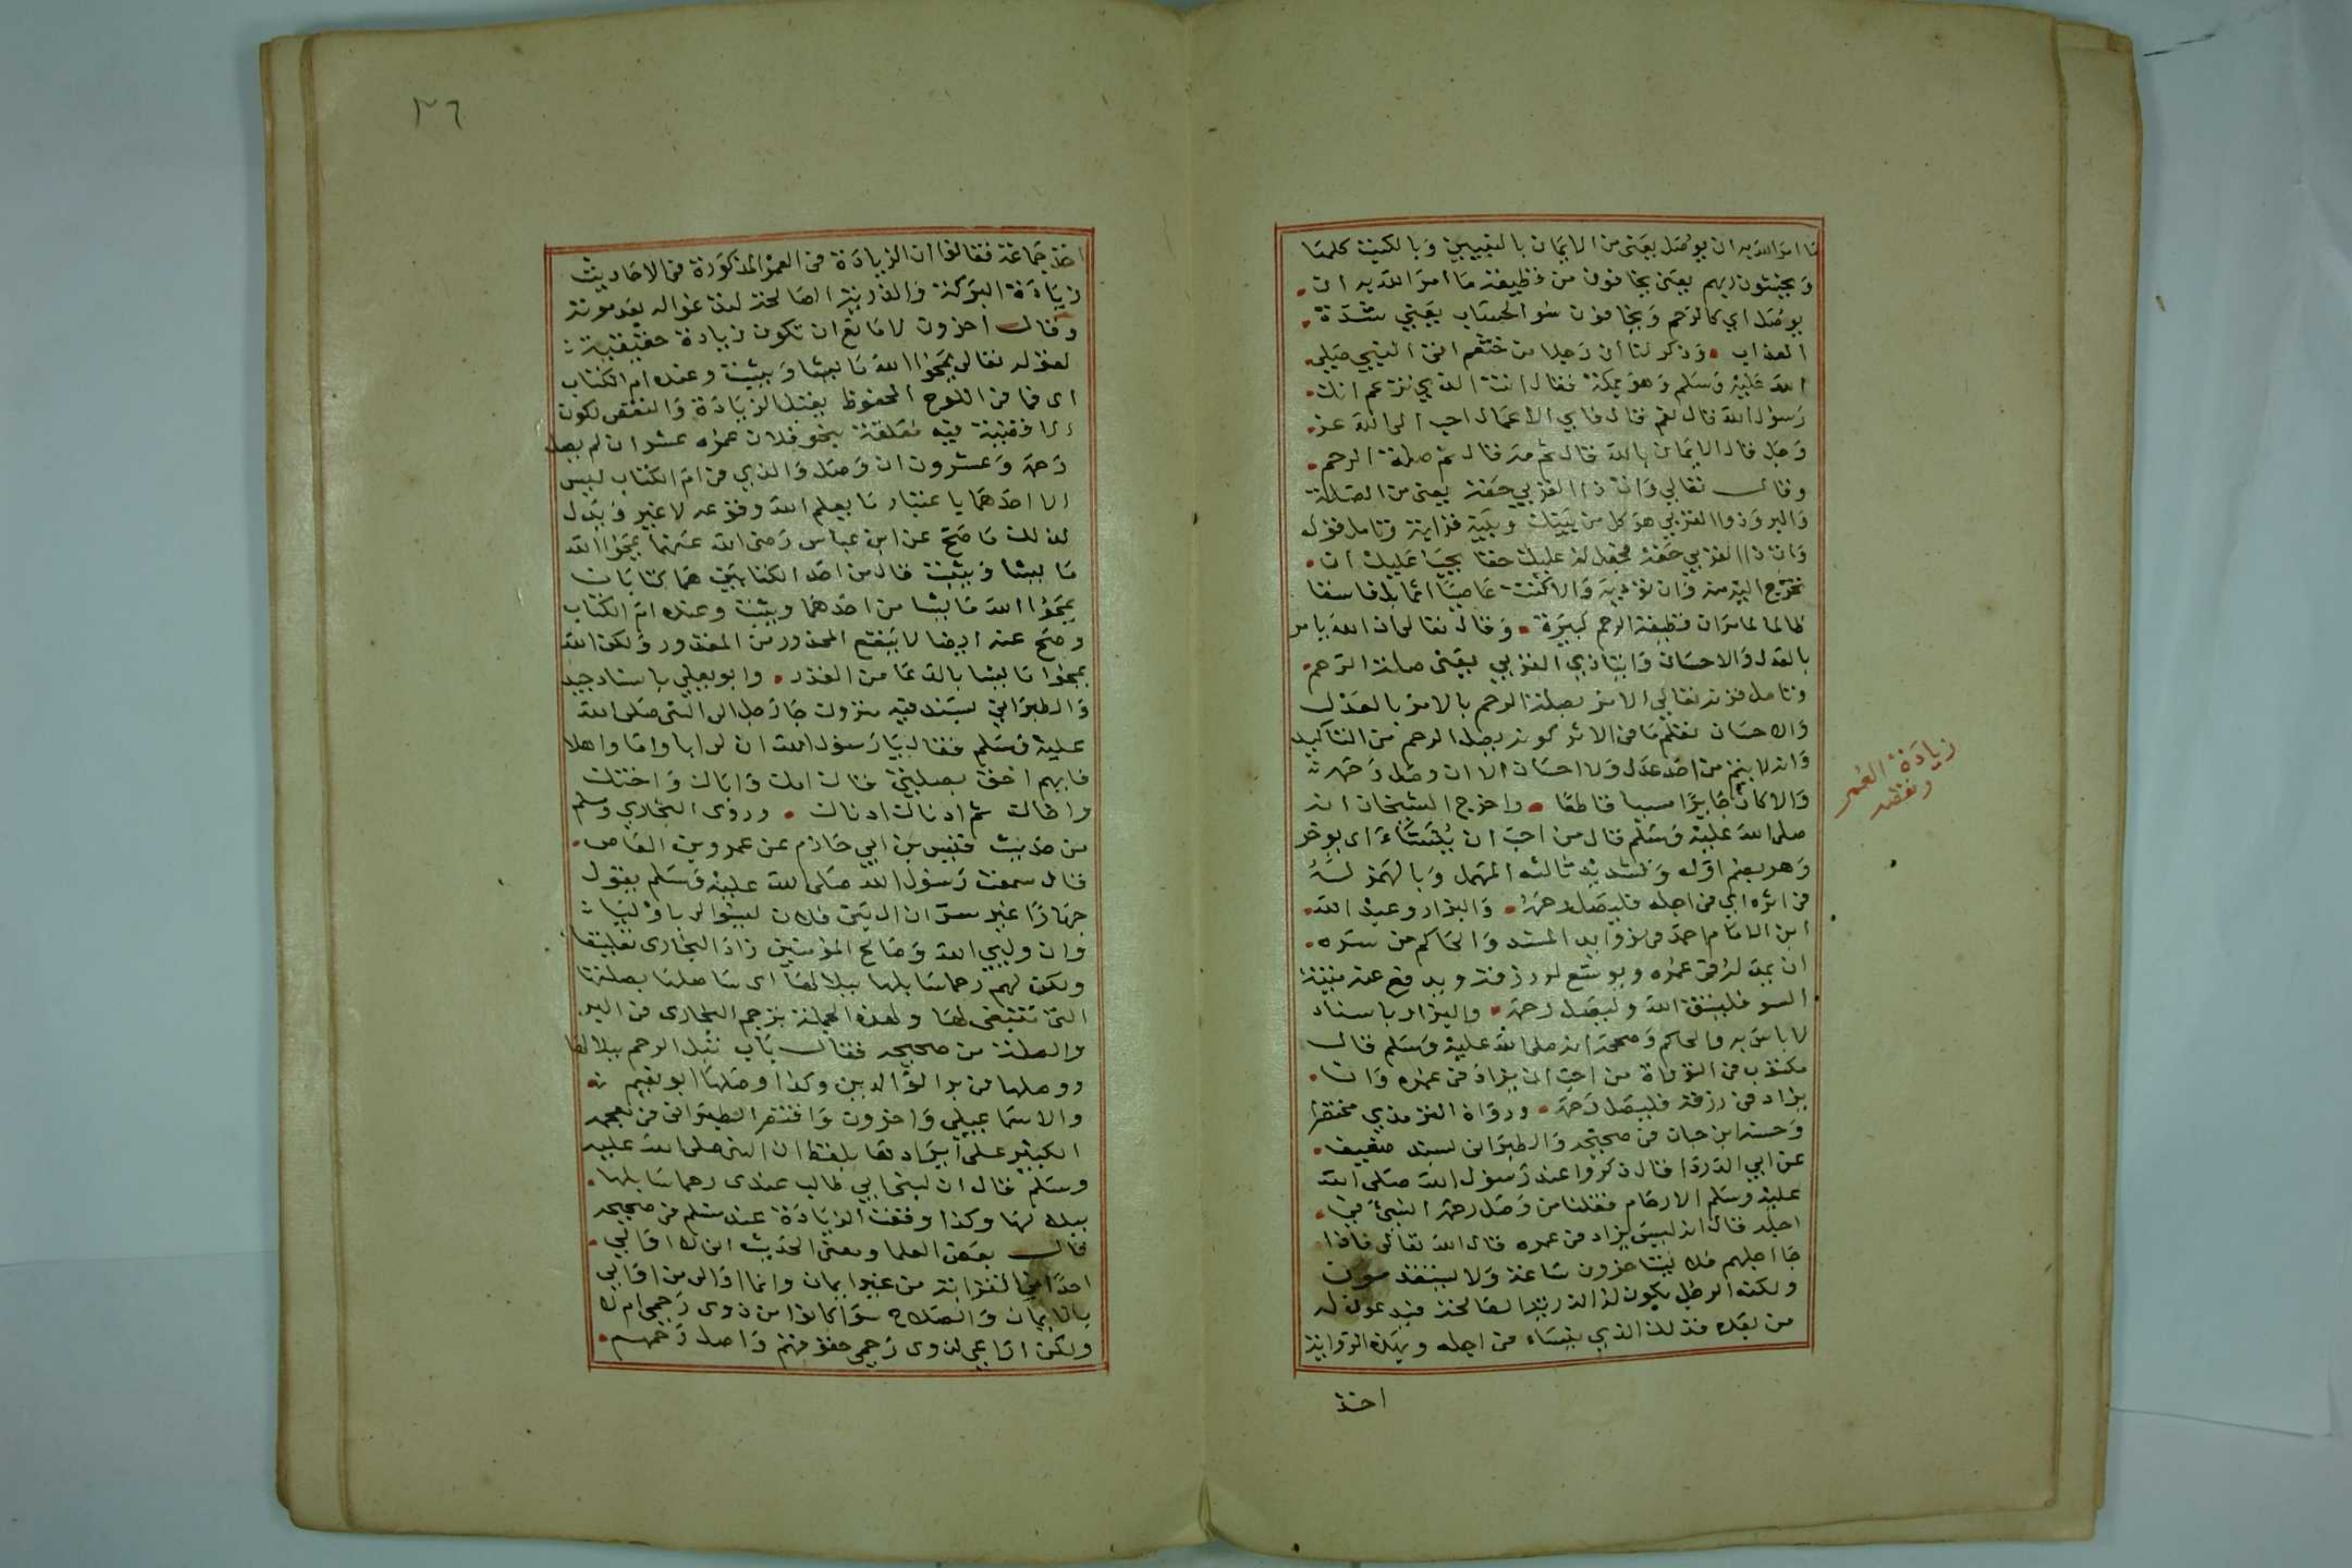 ما امر الله به ان يوصل يعني من الايمان بالنبيين وبالكتب كلها
ويخشون ربهم يعني يخافون من قطيعة ما امر الله به ان
يوصل اي كالرحم ويخافون سو الحساب يعني شدة
العذاب وذكر لنا ان رجلا من خثعم اتى النبي صلى
الله عليه وسلم وهو بمكة فقال انت الذي تزعم انك
رسول الله قال نعم قال فاي الاعمال احب الى الله عز
وجل قال الايمان بالله قال ثم مه قال ثم صلة الرحم
وقال تعالى وات ذا القربى حقه يعني من الصلة
والبر وذوا القربى هو كل من بينك وبينه قرابة وتامل قوله
وات ذا القربى حقه فجعل له عليك حقا يجب عليك ان
تخرج اليه منه وان توديه والا كنت عاصيا اثما بل فاسقا
ظالما لما مر ان قطيعة الرحم كبيرة وقال تعالى ان الله يامر
بالعدل والاحسان وايتا ذي القربى يعني صلة الرحم
وتامل قرنه تعالى الامر بصلة الرحم بالامر بالعدل
والاحسان تعلم ما في الامر كونه بصلة الرحم من التاكيد
وانه لا يتم من احد عدل ولا احسان الا ان وصل رحمه
والا كان جايرا مسيا قاطعا واخرج الشيخان انه
صلى الله عليه وسلم قال من احب ان يُنَسَّاءَ اي يوخر
وهو بضم اوله وتشديد ثالثه المهمل وبالهمز له
في اثره اي في اجله فليصل رحمه والبزار وعبد الله
ابن الامام احمد في زوايد المسند والحاكم من سره
ان يمد له في عمره ويوسع له رزقه ويدفع عنه ميتة
السو فليتق الله وليصل رحمه والبزار باسناد
لا باس به والحاكم وصححه انه صلى الله عليه وسلم قال
مكتوب في التوراة من احب ان يزاد في عمره وان
يزاد في رزقه فليصل رحمه ورواه الترمذي مختصرا
وحسنه ابن حبان في صحيحه والطبراني بسند ضعيف
عن ابي الدردا قال ذكروا عند رسول الله صلى الله
عليه وسلم الارحام فقلنا من وصل رحمه انسئ في
اجله قال انه ليس يزاد في عمره قال الله تعالى فاذا
جا اجلهم فلا يستاخرون ساعة ولا يستقدمون
ولكنه الرجل يكون له الذرية الصالحة فيدعون له
من بعده فذلك الذي ينساء في اجله وبهذه الرواية
اخذ
زيادة العمر
ونقصه
٣٦
اخذ جماعة فقالوا ان الزيادة في العمر المذكورة في الاحاديث
زيادة البركة والذرية الصالحة لتدعوا له بعد موته
وقال اخرون لا مانع ان تكون زيادة حقيقية
لقوله تعالى يمحوا الله ما يشا ويثبت وعنده ام الكتاب
اي فما في اللوح المحفوظ يقبل الزيادة والنقص لكون
الاقضية فيه معلقة نحو فلان عمره عشر ان لم يصل
رحمه وعشرون ان وصل والذي في ام الكتاب ليس
الا احدهما باعتبار ما يعلم الله وقوعه لا غير ويدل
لذلك ما صح عن ابن عباس رضي الله عنهما يمحوا الله
ما يشا ويثبت قال من احد الكتابين هما كتابان
يمحوا الله ما يشا من احدهما ويثبت وعنده ام الكتاب
وصح عنه ايضا لا ينفع الحذر من المقدور ولكن الله
يمحوا ما يشا بالدعا من القدر وابو يعلي باسناد جيد
والطبراني بسند فيه متروك جا رجل الى النبي صلى الله
عليه وسلم فقال يا رسول الله ان لي ابا واما واهلا
فايهم احق بصلتي قال امك واباك واختك
واخاك ثم ادناك ادناك وروى البخاري ومسلم
من حديث قيس بن ابي حازم عن عمرو بن العاص
قال سمعت رسول الله صلى الله عليه وسلم يقول
جهارا غير سر ان ال بني فلان ليسوا لي باوليا
وان وليي الله وصالح المؤمنين زاد البخاري تعليقا
ولكن لهم رحما سابلها ببلالها اي ساصلها بصلتها
التي تنبغي لها ولهذه الجملة ترجم البخاري في البر
والصلة من صحيحه فقال باب تبل الرحم ببلالها
ووصلها في بر الوالدين وكذا وصلها ابو نعيم
والاسماعيلي واخرون واقتصر الطبراني في معجمه
الكبير على ايرادها بلفظ ان النبي صلى الله عليه
وسلم قال ان لبني ابي طالب عندي رحما سابلها
ببلالها وكذا وقعت الزيادة عند مسلم في صحيحه
قال بعض العلما ومعنى الحديث اني لا اوالي
احدا من القرابة من غير ايمان وانما اوالي من اوالي
بالايمان والصلاح سوا كانوا من ذوي رحمي ام لا
ولكن اراعي لذوي رحمي حقوقهم واصل رحمهم